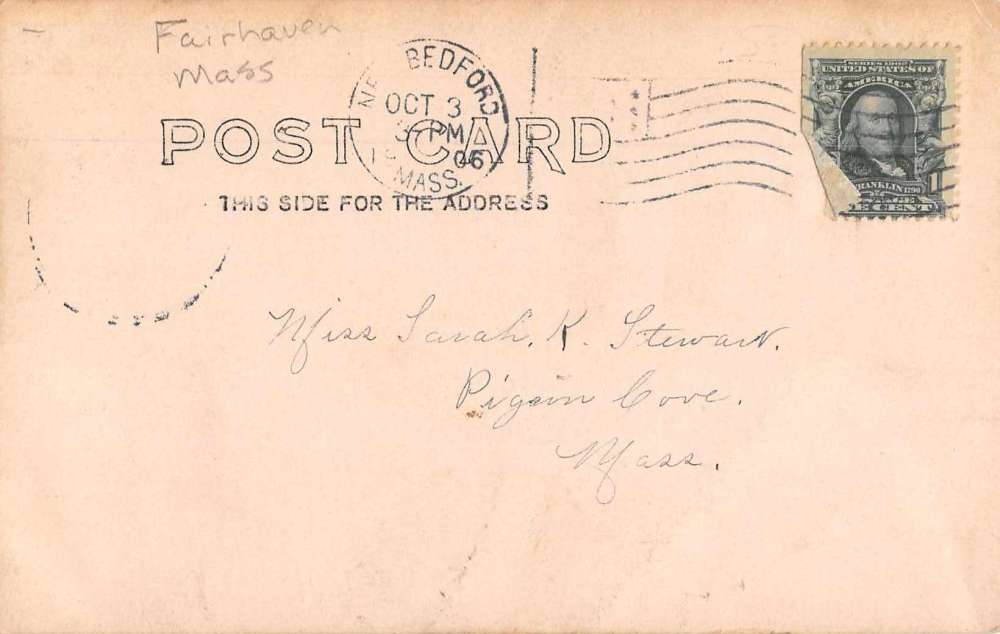 Fairhaven
Mass
NEW BEDFORD
OCT 3
3 PM
06
MASS.
SERIES 1902
UNITED STATES OF
AMERICA
FRANKLIN 1790
POSTAGE
ONE CENT
POST CARD
THIS SIDE FOR THE ADDRESS
Miss Sarah. K. Stewart.
Pigeon Cove.
Mass.